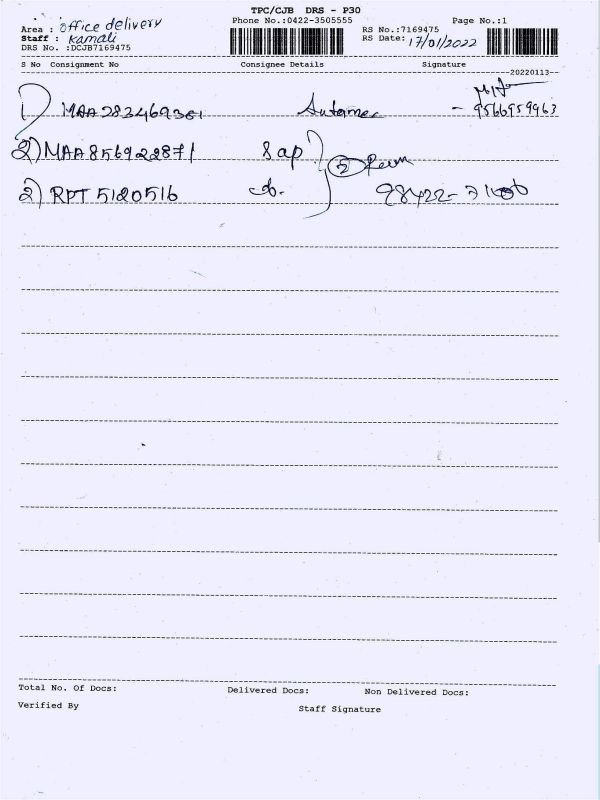 TPC/CJB DRS - P30
Area : office delivery Phone No.:0422-3505555 Page No.:1
Staff : Kamali RS No.:7169475
DRS No. :DCJB7169475 RS Date: 17/01/2022
S No Consignment No Consignee Details Signature
--20220113--
1) MAA283469361 - 9566959963
2) MAA856922871 Sap
2) RPT 5120516
Total No. Of Docs: Delivered Docs: Non Delivered Docs:
Verified By Staff Signature